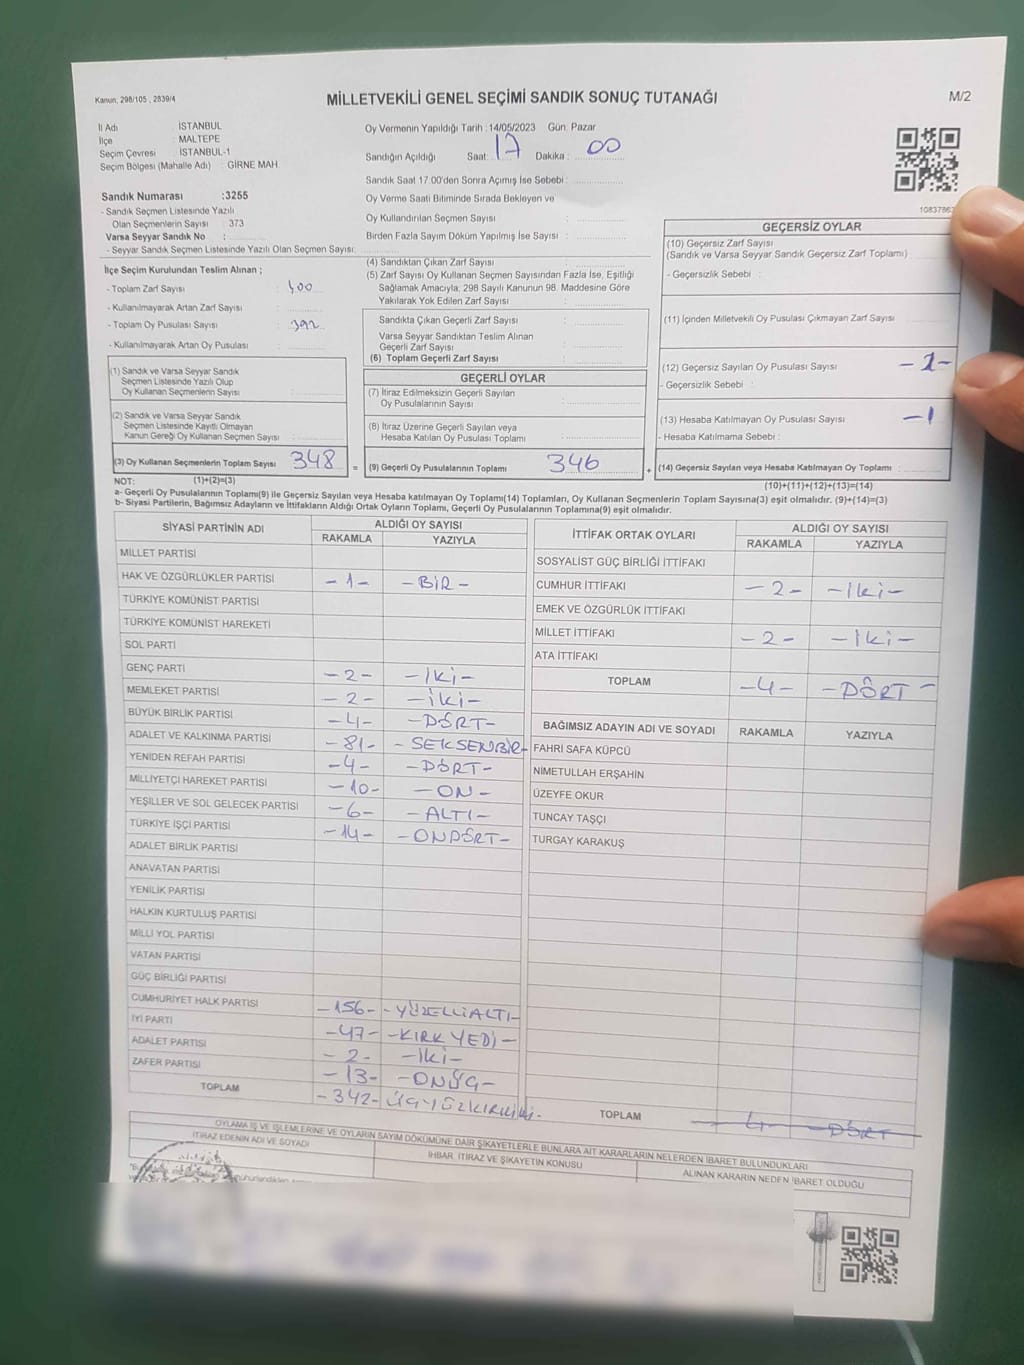 Kanun, 298/105 , 2839/4
MİLLETVEKİLİ GENEL SEÇİMİ SANDIK SONUÇ TUTANAĞI
M/2
İl Adı İSTANBUL
İlçe : MALTEPE
Seçim Çevresi : İSTANBUL-1
Seçim Bölgesi (Mahalle Adı) : GİRNE MAH.
Sandık Numarası :3255
- Sandık Seçmen Listesinde Yazılı
Olan Seçmenlerin Sayısı : 373
Varsa Seyyar Sandık No :
- Seyyar Sandık Seçmen Listesinde Yazılı Olan Seçmen Sayısı:
İlçe Seçim Kurulundan Teslim Alınan ;
- Toplam Zarf Sayısı : 400
- Kullanılmayarak Artan Zarf Sayısı :
- Toplam Oy Pusulası Sayısı : 392
- Kullanılmayarak Artan Oy Pusulası :
(1) Sandık ve Varsa Seyyar Sandık
Seçmen Listesinde Yazılı Olup
Oy Kullanan Seçmenlerin Sayısı :
(2) Sandık ve Varsa Seyyar Sandık
Seçmen Listesinde Kayıtlı Olmayan
Kanun Gereği Oy Kullanan Seçmen Sayısı :
(3) Oy Kullanan Seçmenlerin Toplam Sayısı 348 =
Oy Vermenin Yapıldığı Tarih :14/05/2023 Gün: Pazar
Sandığın Açıldığı Saat: 17 Dakika : 00
Sandık Saat 17.00'den Sonra Açımış İse Sebebi :
Oy Verme Saati Bitiminde Sırada Bekleyen ve
Oy Kullandırılan Seçmen Sayısı :
Birden Fazla Sayım Döküm Yapılmış İse Sayısı :
(4) Sandıktan Çıkan Zarf Sayısı :
(5) Zarf Sayısı Oy Kullanan Seçmen Sayısından Fazla İse, Eşitliği
Sağlamak Amacıyla, 298 Sayılı Kanunun 98. Maddesine Göre
Yakılarak Yok Edilen Zarf Sayısı :
Sandıkta Çıkan Geçerli Zarf Sayısı :
Varsa Seyyar Sandıktan Teslim Alınan
Geçerli Zarf Sayısı :
(6) Toplam Geçerli Zarf Sayısı :
GEÇERLİ OYLAR
(7) İtiraz Edilmeksizin Geçerli Sayılan
Oy Pusulalarının Sayısı :
(8) İtiraz Üzerine Geçerli Sayılan veya
Hesaba Katılan Oy Pusulası Toplamı :
(9) Geçerli Oy Pusulalarının Toplamı 346 +
GEÇERSİZ OYLAR
(10) Geçersiz Zarf Sayısı
(Sandık ve Varsa Seyyar Sandık Geçersiz Zarf Toplamı) :
- Geçersizlik Sebebi :
(11) İçinden Milletvekili Oy Pusulası Çıkmayan Zarf Sayısı
(12) Geçersiz Sayılan Oy Pusulası Sayısı
- Geçersizlik Sebebi :
(13) Hesaba Katılmayan Oy Pusulası Sayısı -1
- Hesaba Katılmama Sebebi :
(14) Geçersiz Sayılan veya Hesaba Katılmayan Oy Toplamı :
NOT: (1)+(2)=(3)
(10)+(11)+(12)+(13)=(14)
a- Geçerli Oy Pusulalarının Toplamı(9) ile Geçersiz Sayılan veya Hesaba katılmayan Oy Toplamı(14) Toplamları, Oy Kullanan Seçmenlerin Toplam Sayısına(3) eşit olmalıdır. (9)+(14)=(3)
b- Siyasi Partilerin, Bağımsız Adayların ve İttifakların Aldığı Ortak Oyların Toplamı, Geçerli Oy Pusulalarının Toplamına(9) eşit olmalıdır.
SİYASİ PARTİNİN ADI ALDIĞI OY SAYISI
RAKAMLA YAZIYLA
MİLLET PARTİSİ
HAK VE ÖZGÜRLÜKLER PARTİSİ -1- -BİR-
TÜRKİYE KOMÜNİST PARTİSİ
TÜRKİYE KOMÜNİST HAREKETİ
SOL PARTİ
GENÇ PARTİ -2- -İKİ-
MEMLEKET PARTİSİ -2- -İKİ-
BÜYÜK BİRLİK PARTİSİ -4- -DÖRT-
ADALET VE KALKINMA PARTİSİ -81- -SEKSENBİR-
YENİDEN REFAH PARTİSİ -4- -DÖRT-
MİLLİYETÇİ HAREKET PARTİSİ -10- -ON-
YEŞİLLER VE SOL GELECEK PARTİSİ -6- -ALTI-
TÜRKİYE İŞÇİ PARTİSİ -14- -ONDÖRT-
ADALET BİRLİK PARTİSİ
ANAVATAN PARTİSİ
YENİLİK PARTİSİ
HALKIN KURTULUŞ PARTİSİ
MİLLİ YOL PARTİSİ
VATAN PARTİSİ
GÜÇ BİRLİĞİ PARTİSİ
CUMHURİYET HALK PARTİSİ -156- -YÜZELLİALTI-
İYİ PARTİ -47- -KIRK YEDİ-
ADALET PARTİSİ -2- -İKİ-
ZAFER PARTİSİ -13- -ONÜÇ-
TOPLAM -342- ÜÇYÜZKIRKİKİ-
İTTİFAK ORTAK OYLARI ALDIĞI OY SAYISI
RAKAMLA YAZIYLA
SOSYALİST GÜÇ BİRLİĞİ İTTİFAKI
CUMHUR İTTİFAKI -2- -İKİ-
EMEK VE ÖZGÜRLÜK İTTİFAKI
MİLLET İTTİFAKI -2- -İKİ-
ATA İTTİFAKI
TOPLAM -4- -DÖRT-
BAĞIMSIZ ADAYIN ADI VE SOYADI RAKAMLA YAZIYLA
FAHRİ SAFA KÜPCÜ
NİMETULLAH ERŞAHİN
ÜZEYFE OKUR
TUNCAY TAŞÇI
TURGAY KARAKUŞ
TOPLAM 4 DÖRT
OYLAMA İŞ VE İŞLEMLERİNE VE OYLARIN SAYIM DÖKÜMÜNE DAİR ŞİKAYETLERLE BUNLARA AİT KARARLARIN NELERDEN İBARET BULUNDUKLARI
İTİRAZ EDENİN ADI VE SOYADI İHBAR, İTİRAZ VE ŞİKAYETİN KONUSU ALINAN KARARIN NEDEN İBARET OLDUĞU